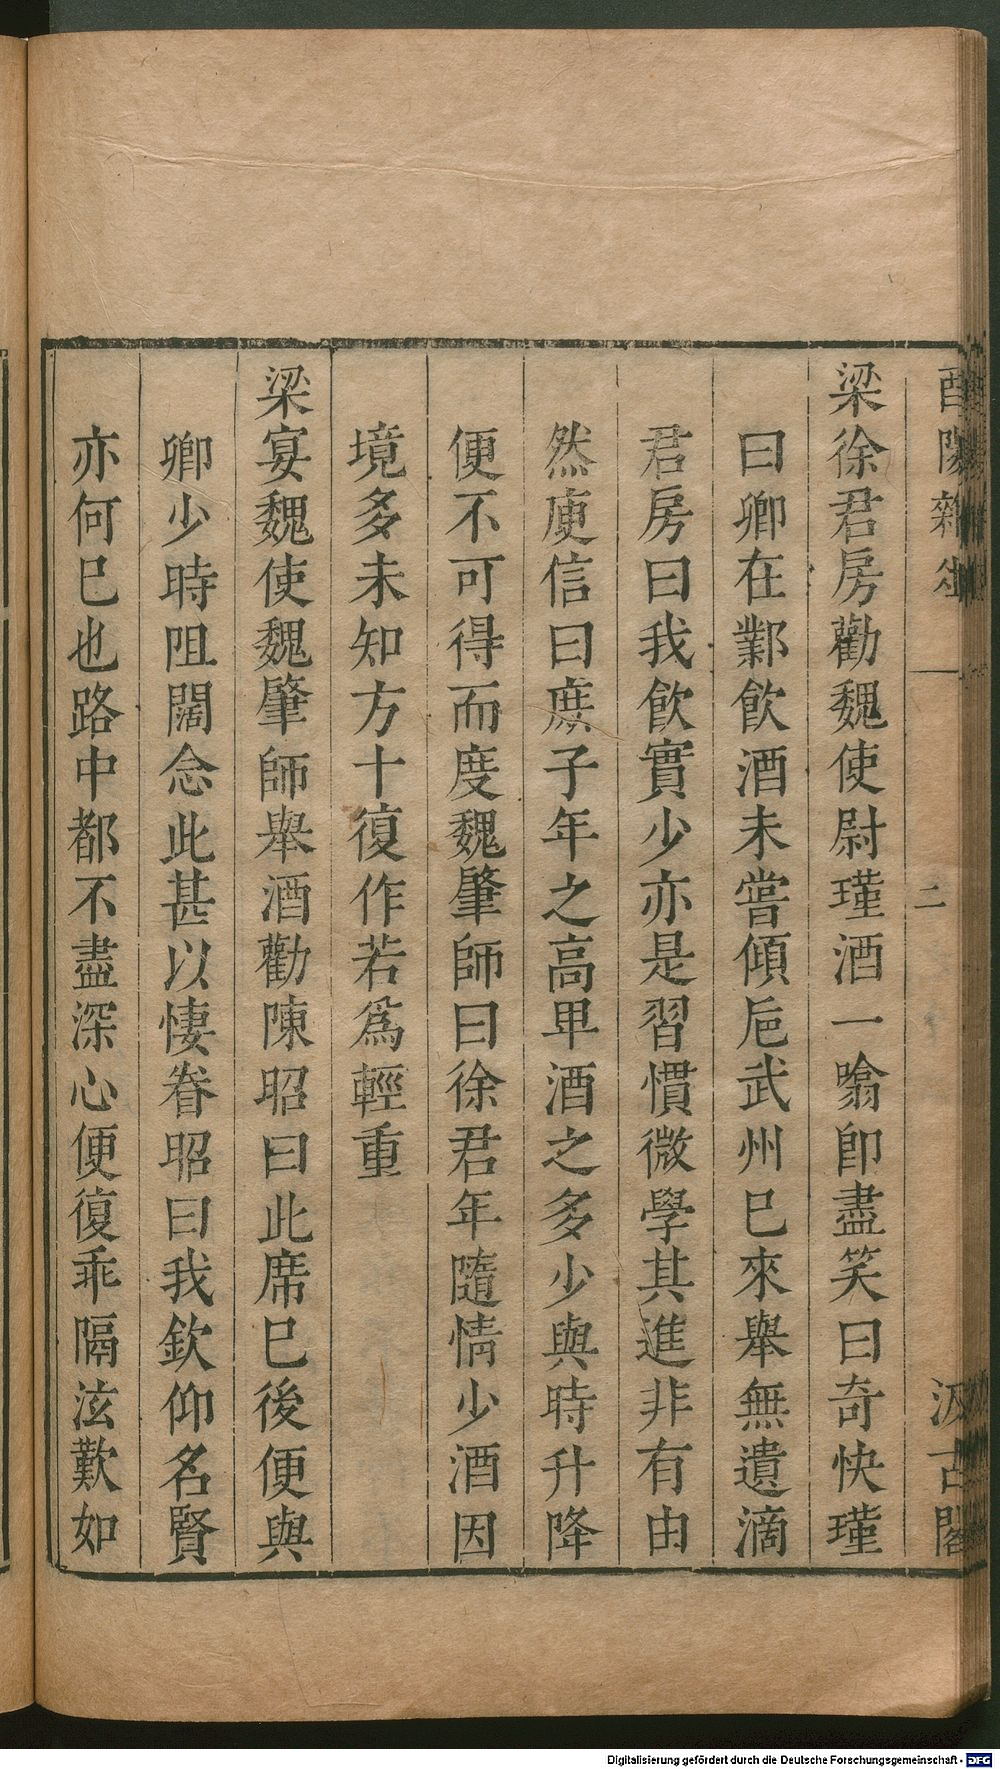 酉陽雜俎
二
汲古閣
梁徐君房勸魏使尉瑾酒一噏卽盡笑曰奇快瑾
曰卿在鄴飮酒未嘗傾巵武州巳來舉無遺滴
君房曰我飮實少亦是習慣微學其進非有由
然庾信曰庶子年之高卑酒之多少與時升降
便不可得而度魏肇師曰徐君年隨情少酒因
境多未知方十復作若爲輕重
梁宴魏使魏肇師舉酒勸陳昭曰此席巳後便與
卿少時阻闊念此甚以悽眷昭曰我欽仰名賢
亦何巳也路中都不盡深心便復乖隔泫歎如
Digitalisierung gefördert durch die Deutsche Forschungsgemeinschaft - DFG